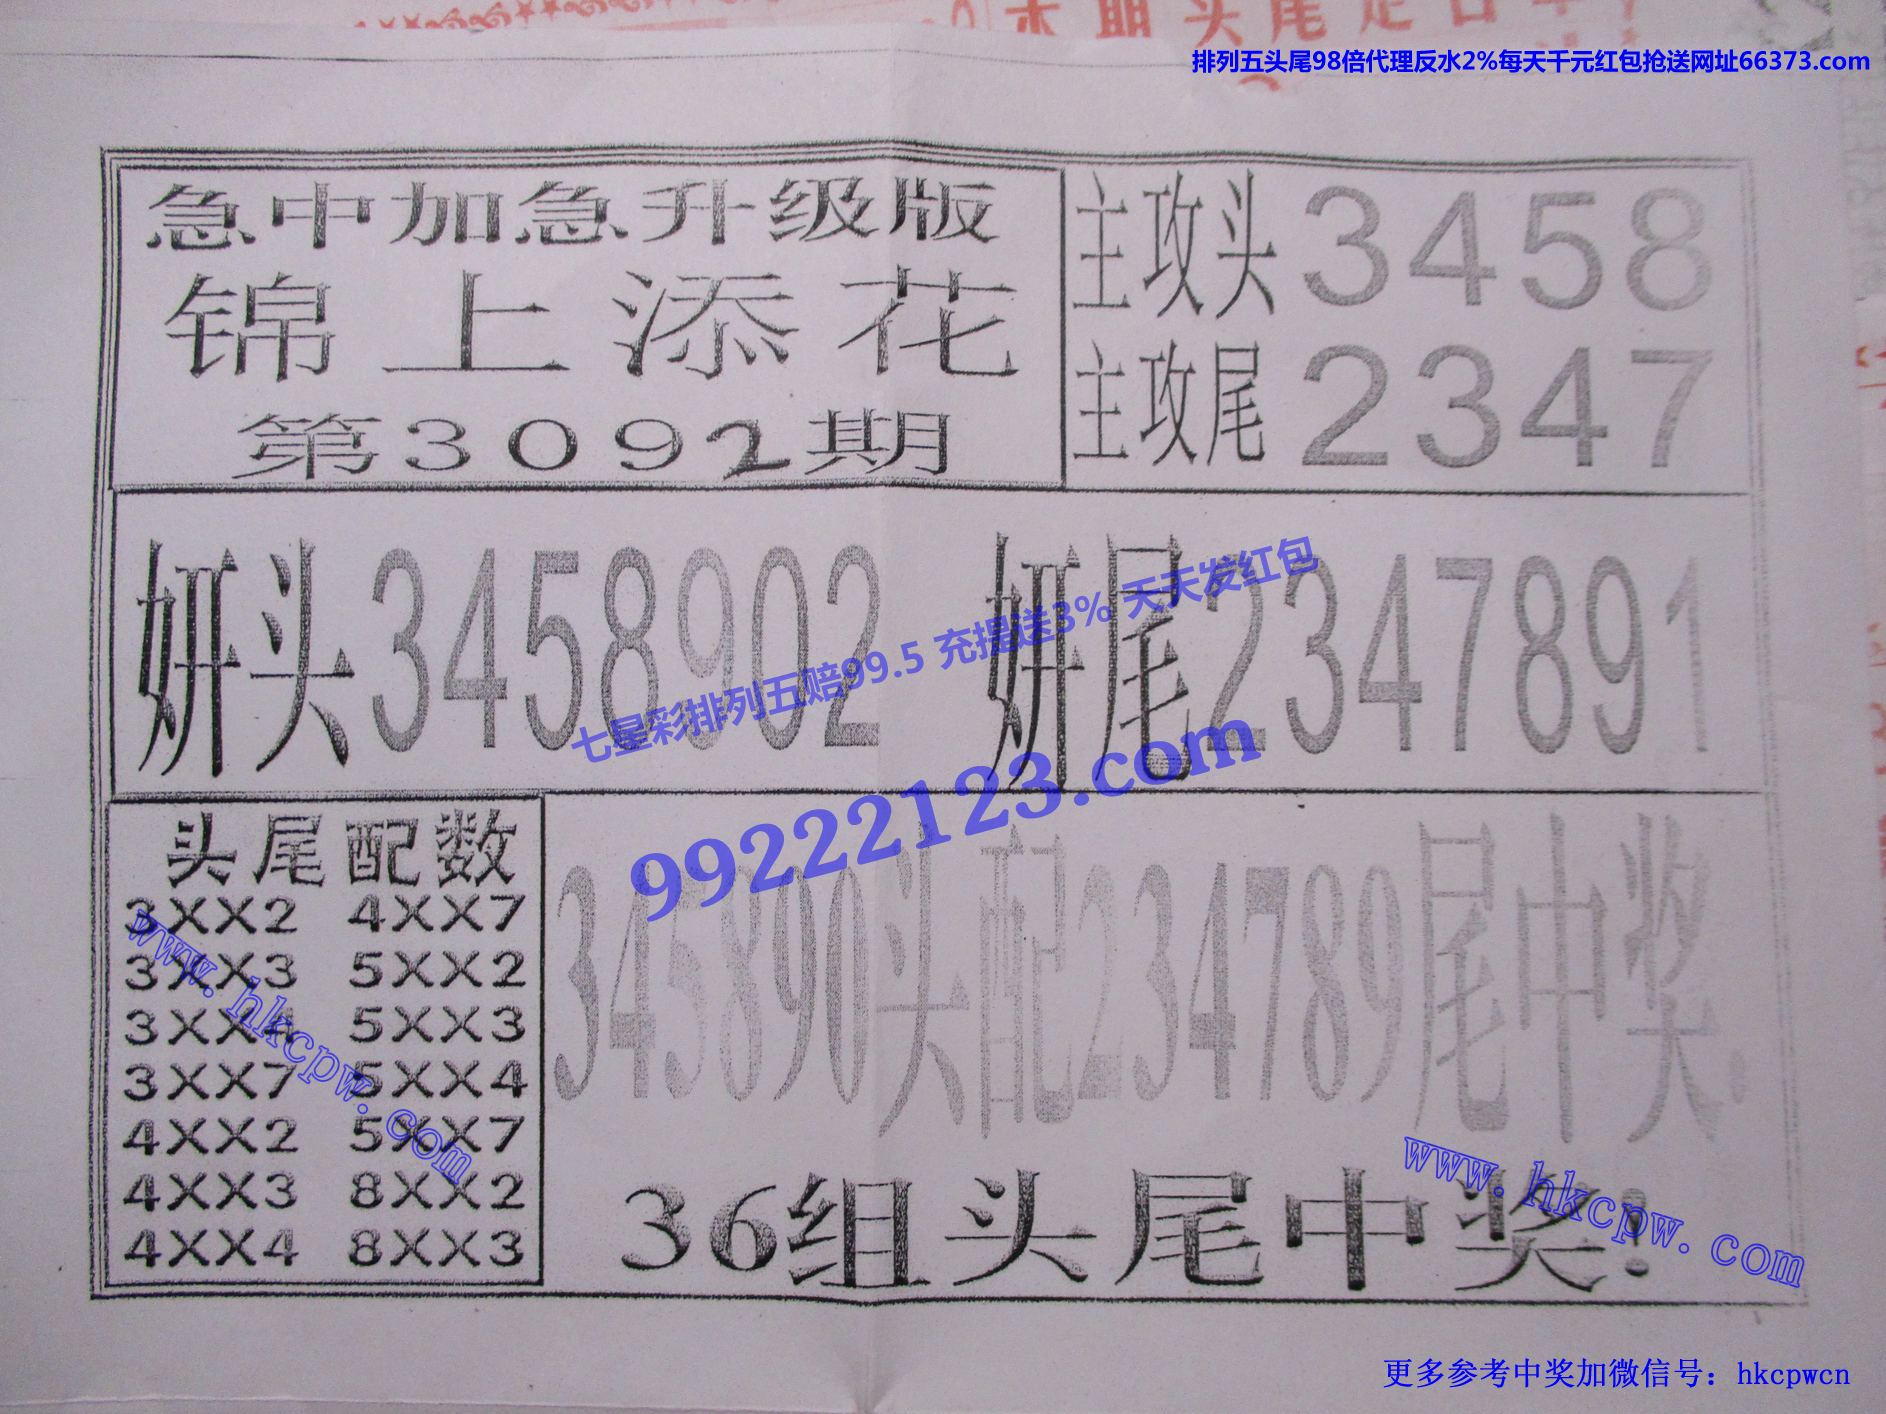 本期头尾定日牛!
排列五头尾98倍代理反水2%每天千元红包抢送网址66373.com
急中加急升级版
锦上添花
第3092期
主攻头3458
主攻尾2347
妍头3458902
妍尾2347891
七星彩排列五赔99.5 充提送3% 天天发红包
99222123.com
头尾配数
3XX2 4XX7
3XX3 5XX2
3XX4 5XX3
3XX7 5XX4
4XX2 5XX7
4XX3 8XX2
4XX4 8XX3
345890头配234789尾中奖!
36组头尾中奖!
www.hkcpw.com
www.hkcpw.com
更多参考中奖加微信号：hkcpwcn